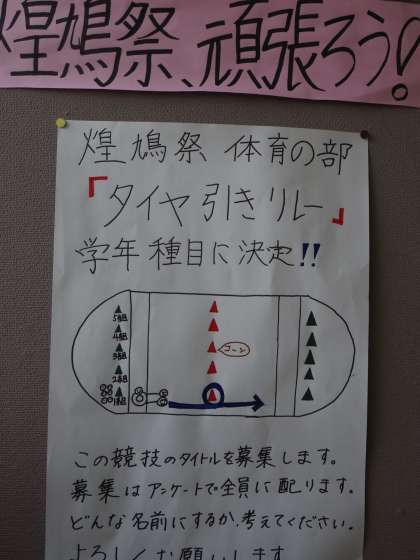 煌鳩祭、頑張ろう!
煌鳩祭 体育の部
「タイヤ引きリレー」
学年種目に決定!!
5組
4組
3組
2組
1組
コーン
この競技のタイトルを募集します。
募集はアンケートで全員に配ります。
どんな名前にするか、考えてください。
よろしくお願いします